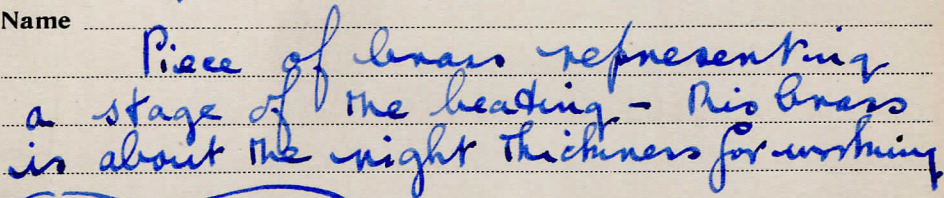 Name
Piece of brass representing
a stage of the beating - this brass
is about the right thickness for working